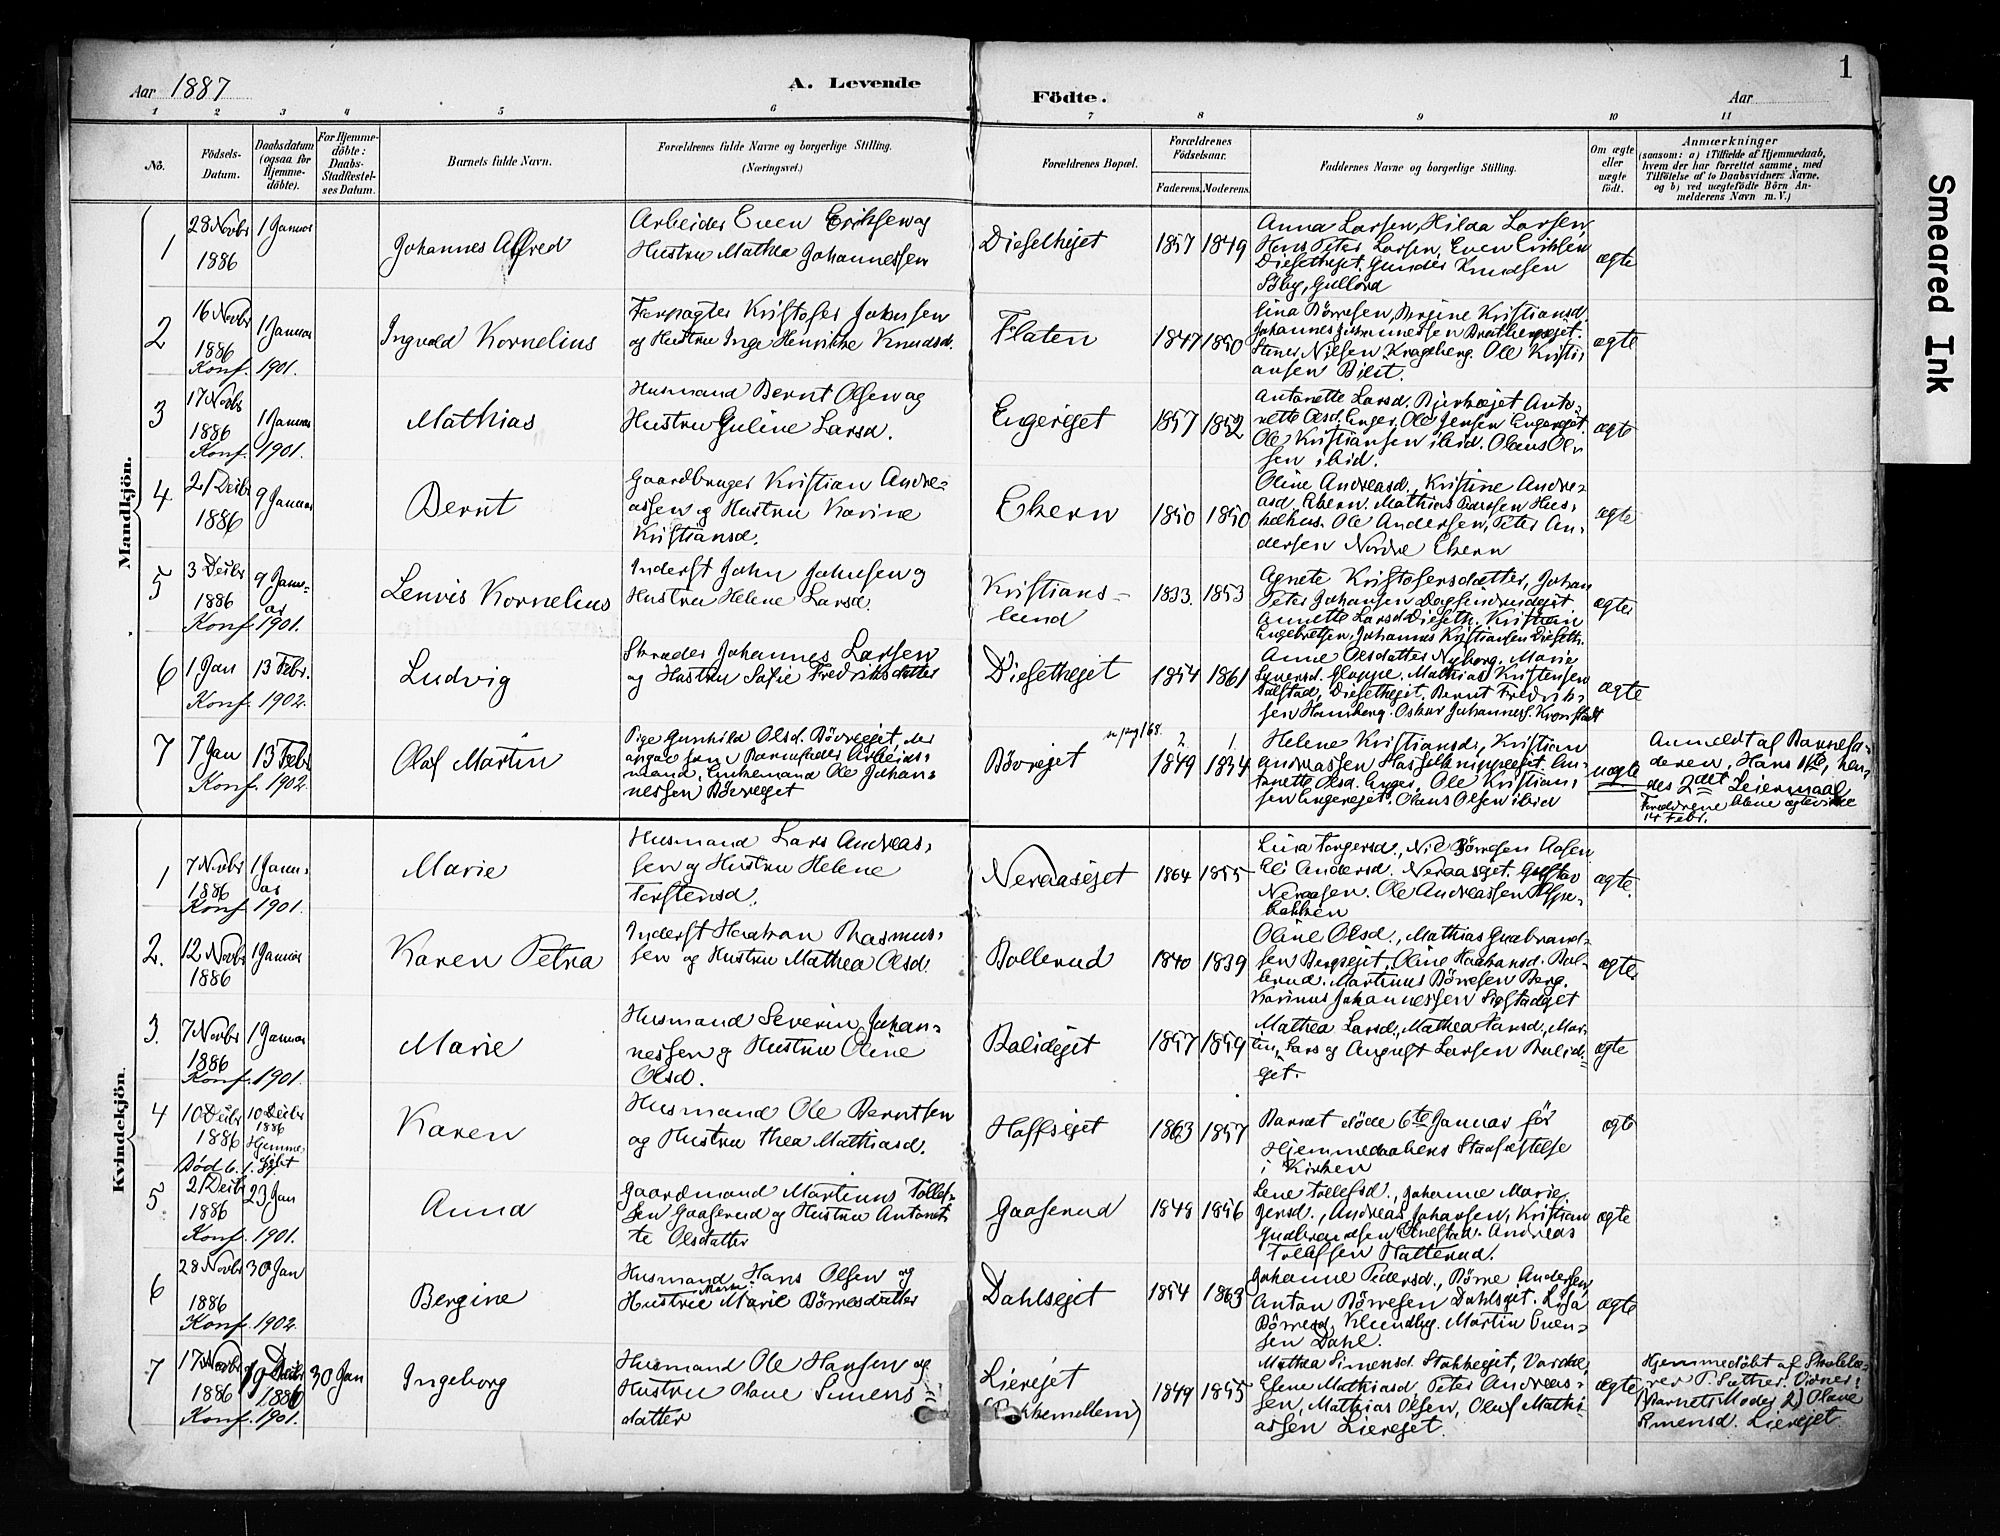 1
Aar 1887
A. Levende
Födte.
Aar
1 2 3 4 5 6 7 8 9 10 11
No.
Födsels-Datum.
Daabsdatum (ogsaa for Hjemmedöbte).
For Hjemmedöbte: Daabs-Stadfæstelses Datum.
Barnets fulde Navn.
Forældrenes fulde Navne og borgerlige Stilling. (Næringsvei.)
Forældrenes Bopæl.
Forældrenes Födselsaar.
Faderens. Moderens.
Faddernes Navne og borgerlige Stilling.
Om ægte eller uægte födt.
Anmærkninger
(saasom: a) i Tilfælde af Hjemmedaab, hvem der har forrettet samme, med Tilföielse af to Daabsvidners Navne, og b) ved uægtefödte Börn Anmelderens Navn m. V.)
Smeared Ink
Mandkjön.
1
28 Novbr 1886
1 Januar
Johannes Alfred
Arbeider Even Eriksen og
Hustru Mathea Johannessen
Diesethejet
1857 1849
Anna Larsen, Hilda Larsen,
Hans Peter Larsen, Even Eriksen
Diesethejet. Gunder Knudsen
ægte
2
16 Novbr 1886
1 Januar
Konf. 1901.
Ingvald Kornelius
Forpagter Kristofer Johnsen
og Hustru Inge Henrikke Knudsd.
Flaten
1847 1850
Lina Børresen, Bergine Kristiansd.
Nilsen Krageberg. Ole Kristi-
ansen
ægte
3
17 Novbr 1886
1 Januar
Konf. 1901.
Mathias
Husmand Bernt Olsen og
Hustru Guline Larsd.
Engerejet
1857 1852
Antonette Larsd. Anto-
nette Olsd. Enger, Ole Jensen Engerejet.
Ole Kristiansen ibid. Olaus Ol-
sen ibid.
ægte
4
21 Decbr 1886
9 Januar
Bernt
Gaardbruger Kristian Andre-
assen og Hustru Karine
Kristiansd.
Ekern
1850 1850
Oline Andreasd., Kristine Andre-
asd. Ekern. Mathias Pedersen
Ole Andersen, Peter An-
dersen Nordre Ekern
ægte
5
3 Decbr 1886
9 Janu-
ar
Konf. 1901.
Lenvis Kornelius
Inderst John Johnsen og
Hustru Helene Larsd.
Kristians-
lund
1833. 1853
Agnete Kristofersdatter, Johan
Peter Johansen
Annette Larsd. Dieseth. Kristian
Engebretsen, Johannes Kristiansen Dieseth.
ægte
6
1 Jan
13 Febr.
Konf. 1902.
Ludvig
Skræder Johannes Larsen
og Hustru Sofie Fredriksdatter
Diesethejet
1854 1861
Anne Olsdatter Nyborg, Marie
Syversd. Gloppe. Mathias Kristensen
Diesethejet. Bernt Fredrik-
sen Oskar Johanness. Kronstadt
ægte
7
7 Jan
13 Febr
Konf. 1902.
Olaf Martin
Pige Gunhild Olsd. Børrejet, der
angav som Barnefader Arbeids-
mand, Enkemand Ole Johan-
nessen Børrejet
Børrejet
2. 1.
1849 1834
Helene Kristiansd., Kristian
Andreassen Hasselknippejet. An-
tonette Olsd. Enger, Ole Kristian-
sen Engerejet. Olaus Olsen ibid
uægte
Anmeldt af Barnefa-
deren, Hans 1te, hen-
des 2det Leiermaal
Forældrene
14 Febr.
Kvindekjön.
1
7 Novbr 1886
1 Janu-
ar
Konf. 1901.
Marie
Husmand Lars Andreas-
sen og Hustru Helene
Torstensd.
Neraasejet
1864 1855
Lina Torgersd., Nils Børresen Aasen
Eli Andersd. Neraasejet. Gustav
Neraasen. Ole Andreassen
bakken
ægte.
2.
12 Novbr 1886
1 Januar
Karen Petra
Inderst Haakan Rasmus-
sen og Hustru Mathea Olsd.
Bollerud
1840 1839
Oline Olsd., Mathias Gudbrand-
sen Bergsejet, Oline Haakansd. Bol-
lerud. Martinus Børresen Berg.
Karinus Johannessen
ægte.
3.
7 Novbr 1886
1 Januar
Konf. 1901.
Marie
Husmand Severin Johan-
nessen og Hustru Oline
Olsd.
Balidejet
1857 1859
Mathea Larsd., Mathea Hansd., Mar-
tin, Lars og August Larsen Balid-
ejet.
ægte
4
10 Decbr 1886
10 Decbr
1886
Hjemme-
døbt
Død 6. 1. 87
Karen
Husmand Ole Berntsen
og Hustru Thea Mathiasd.
Hoffsejet
1863 1857
Barnet døde 6te Januar før
Hjemmedaabens Stadfæstelse
i Kirken
ægte
5
21 Decbr 1886
23 Jan
Konf. 1901.
Anna
Gaardmand Martinus Tollef-
sen Gaaserud og Hustru Antonet-
te Olsdatter
Gaaserud
1848 1856
Lene Tollefsd., Johanne Marie
Jensd., Andreas Johansen, Kristian
Gudbrandsen Andreas
Tollefsen Hatterud.
ægte
6
28 Novbr 1886
30 Jan
Konf. 1902.
Bergine
Husmand Hans Olsen og
Hustru Marie Børresdatter
Dahlsejet
1854 1863
Johanne Pedersd., Børre Andersen,
Anton Børresen Dahlsejet. Lisa
Børresd. Klundby. Martin Even-
sen Dahl.
ægte
7
17 Novbr 1886
19 Decbr
1886
30 Jan
Konf. 1901.
Ingeborg
Husmand Ole Hansen og
Hustru Olave Simens-
datter
Lierejet
1849 1855
Mathea Simensd. Stokkejet,
Mathiasd., Peter Andreas-
sen, Mathias Olsen, Oluf Mathi-
assen Lierejet.
ægte
Hjemmedøbt af Skolelæ-
rer P. Sæther. Vidner:
1) Barnets Moder 2) Olave
Simensd. Lierejet.